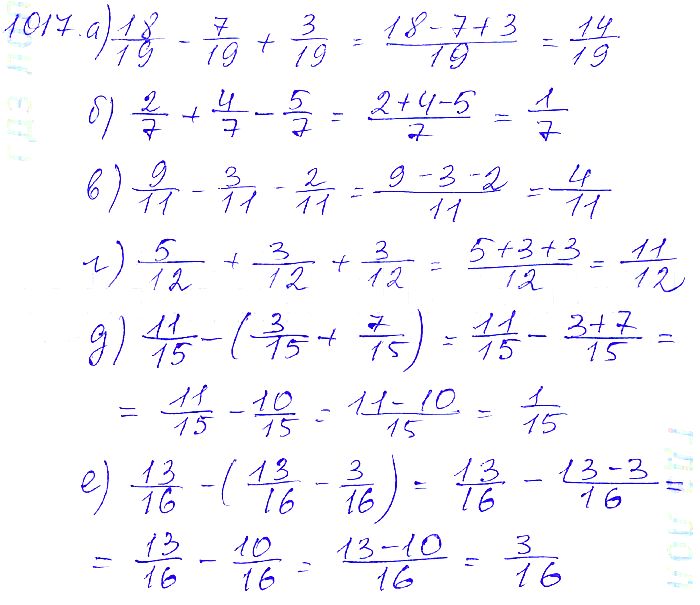 1017. а) 18/19 - 7/19 + 3/19 = (18-7+3)/19 = 14/19
б) 2/7 + 4/7 - 5/7 = (2+4-5)/7 = 1/7
в) 9/11 - 3/11 - 2/11 = (9-3-2)/11 = 4/11
г) 5/12 + 3/12 + 3/12 = (5+3+3)/12 = 11/12
д) 11/15 - (3/15 + 7/15) = 11/15 - (3+7)/15 =
= 11/15 - 10/15 = (11-10)/15 = 1/15
е) 13/16 - (13/16 - 3/16) = 13/16 - (13-3)/16 =
= 13/16 - 10/16 = (13-10)/16 = 3/16